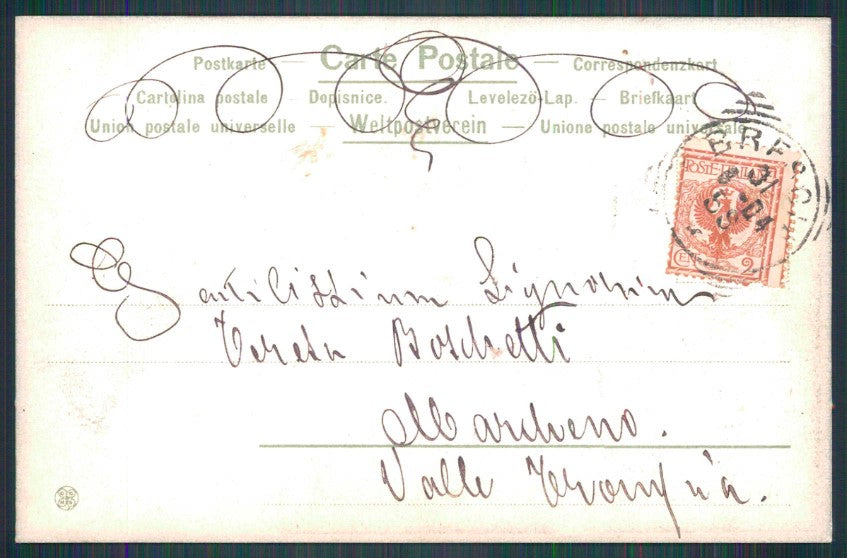 Postkarte — Carte Postale — Correspondenzkart
Cartolina postale — Dopisnice. — Levelezö-Lap. — Briefkaart
Union postale universelle — Weltpostverein — Unione postale universale
POSTE ITALIANE
CENT 2
Gentilissima Signorina
Teresa Boschetti
Marcheno.
Valle Trompia.